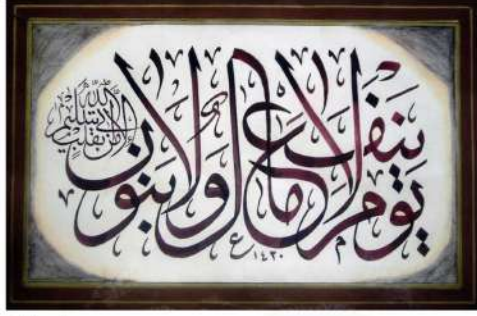 يوم لا ينفع مال ولا بنون
إلا من أتى الله بقلب سليم